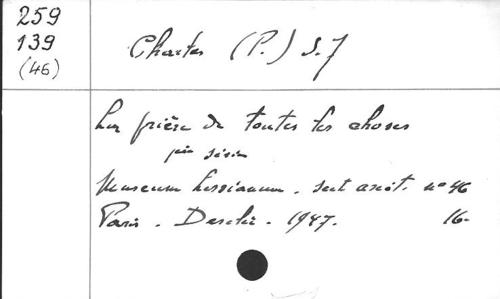 259
139
(46)
Charles (P.) S.J
La prière de toutes les choses
série
Museum Lessianum. sect ascét. nº 46
Paris. Desclée. 1947. 16-